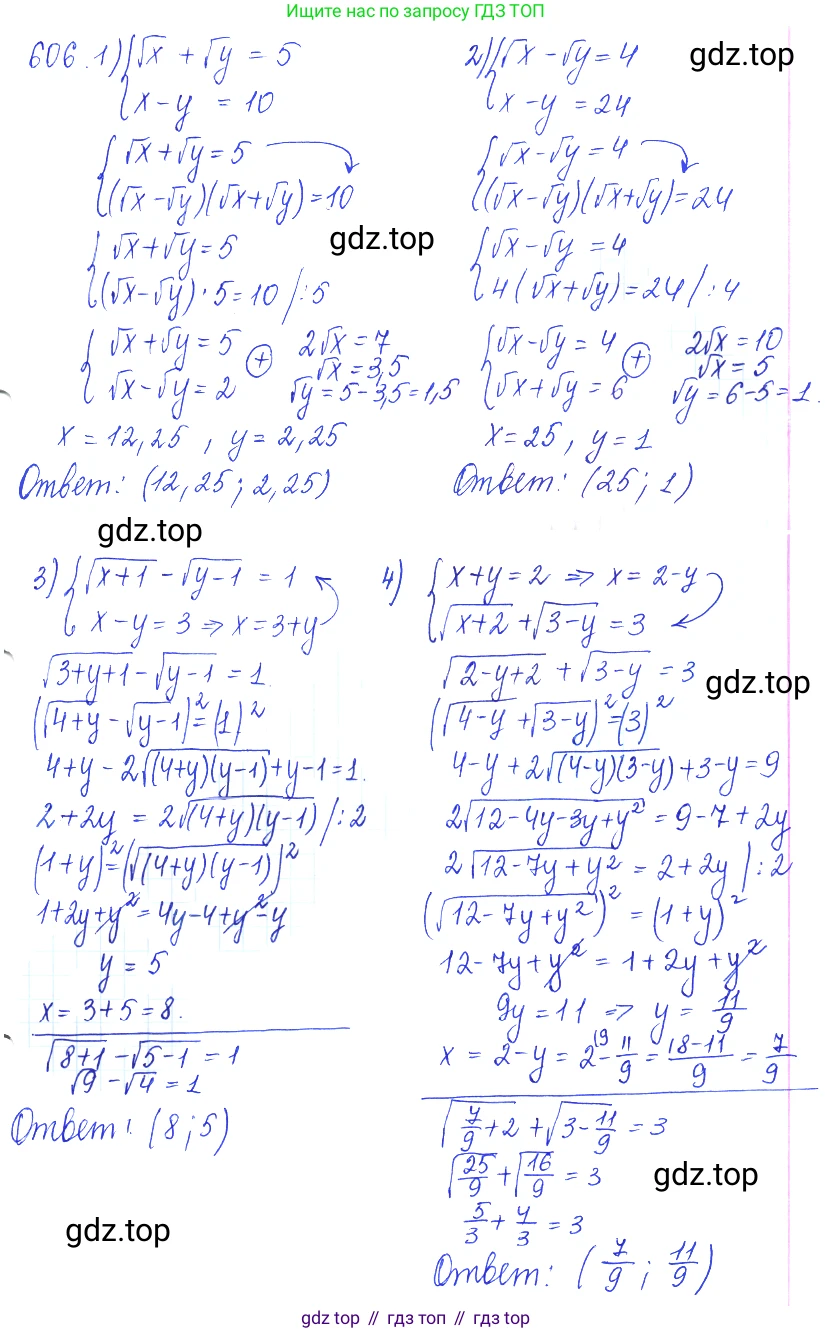 Ищите нас по запросу ГДЗ ТОП
606. 1) { √x + √y = 5
x - y = 10
{ √x + √y = 5
(√x - √y)(√x + √y) = 10
gdz.top
{ √x + √y = 5
(√x - √y) · 5 = 10 /: 5
{ √x + √y = 5
√x - √y = 2
(+)
2√x = 7
√x = 3,5
√y = 5 - 3,5 = 1,5
x = 12,25 , y = 2,25
Ответ: (12,25 ; 2,25)
gdz.top
2) { √x - √y = 4
x - y = 24
gdz.top
{ √x - √y = 4
(√x - √y)(√x + √y) = 24
{ √x - √y = 4
4(√x + √y) = 24 /: 4
{ √x - √y = 4
√x + √y = 6
(+)
2√x = 10
√x = 5
√y = 6 - 5 = 1.
x = 25, y = 1
Ответ: (25 ; 1)
3) { √(x+1) - √(y-1) = 1
x - y = 3 ⇒ x = 3 + y
√(3+y+1) - √(y-1) = 1.
(√(4+y) - √(y-1))² = (1)²
4 + y - 2√((4+y)(y-1)) + y - 1 = 1.
2 + 2y = 2√((4+y)(y-1)) /: 2
(1+y)² = (√((4+y)(y-1)))²
1 + 2y + y² = 4y - 4 + y² - y
y = 5
x = 3 + 5 = 8.
√(8+1) - √(5-1) = 1
√9 - √4 = 1
Ответ: (8 ; 5)
gdz.top
4) { x + y = 2 ⇒ x = 2 - y
√(x+2) + √(3-y) = 3
√(2-y+2) + √(3-y) = 3
gdz.top
(√(4-y) + √(3-y))² = (3)²
4 - y + 2√((4-y)(3-y)) + 3 - y = 9
2√(12-4y-3y+y²) = 9 - 7 + 2y
2√(12-7y+y²) = 2 + 2y /: 2
(√(12-7y+y²))² = (1+y)²
12 - 7y + y² = 1 + 2y + y²
9y = 11 ⇒ y = 11/9
x = 2 - y = 2⁽⁹ - 11/9 = (18-11)/9 = 7/9
√(7/9 + 2) + √(3 - 11/9) = 3
√(25/9) + √(16/9) = 3
gdz.top
5/3 + 4/3 = 3
Ответ: (7/9 ; 11/9)
gdz.top // гдз топ // gdz top